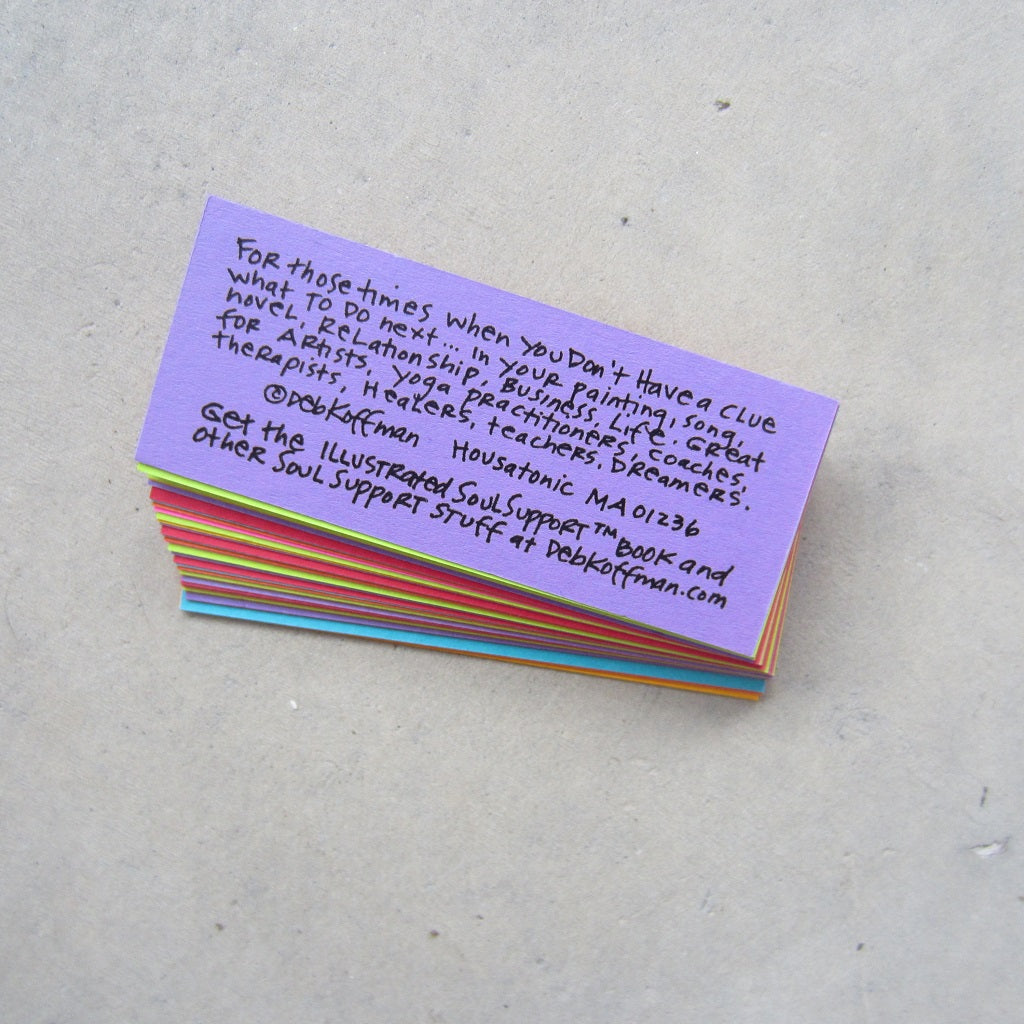 FOR those times when you DON't Have a CLUE
what TO DO next... in your painting, song,
novel, Relationship, Business, Life. Great
for Artists, yoga practitioners, coaches,
therapists, Healers, teachers. Dreamers.
©DebKoffman Housatonic MA 01236
Get the ILLUSTRATED SOULSUPPORT™ BOOK and
other SOULSUPPORT STUFF at DebKoffman.com